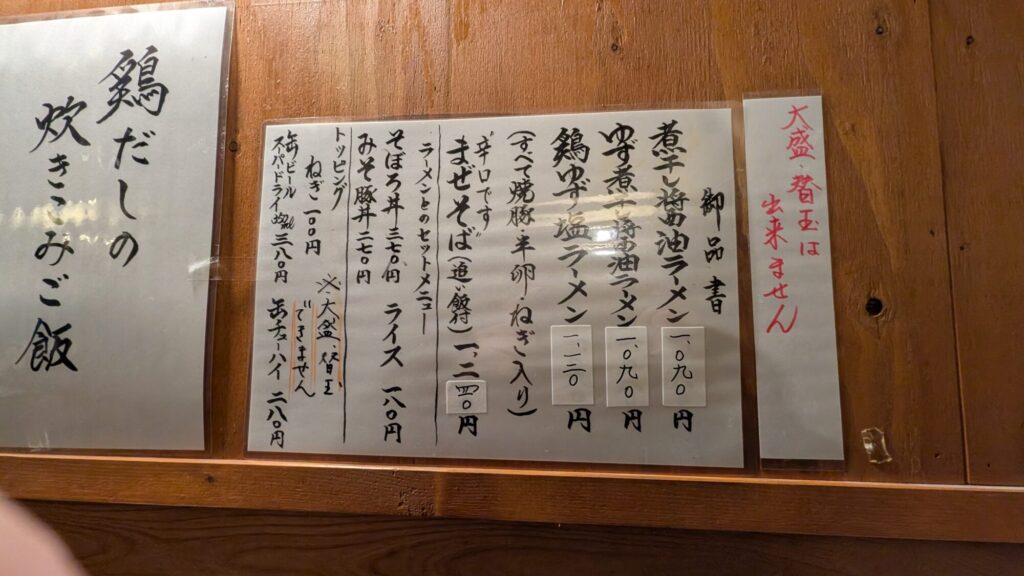 大盛・替玉は
出来ません
御品書
煮干し醤油ラーメン 一、〇九〇円
ゆず煮干し醤油ラーメン 一、〇九〇円
鶏ゆず塩ラーメン 一、一二〇円
(すべて焼豚・半卵・ねぎ入り)
辛口です
まぜそば(追い飯付) 一、二四〇円
ラーメンとのセットメニュー
そぼろ丼 三七〇円 ライス 一八〇円
みそ豚丼 二七〇円
トッピング
ねぎ 一〇〇円
※大盛 替玉
できません
缶ビール
スーパードライ 三八〇円 缶チューハイ 二八〇円
鶏だしの
炊きこみご飯